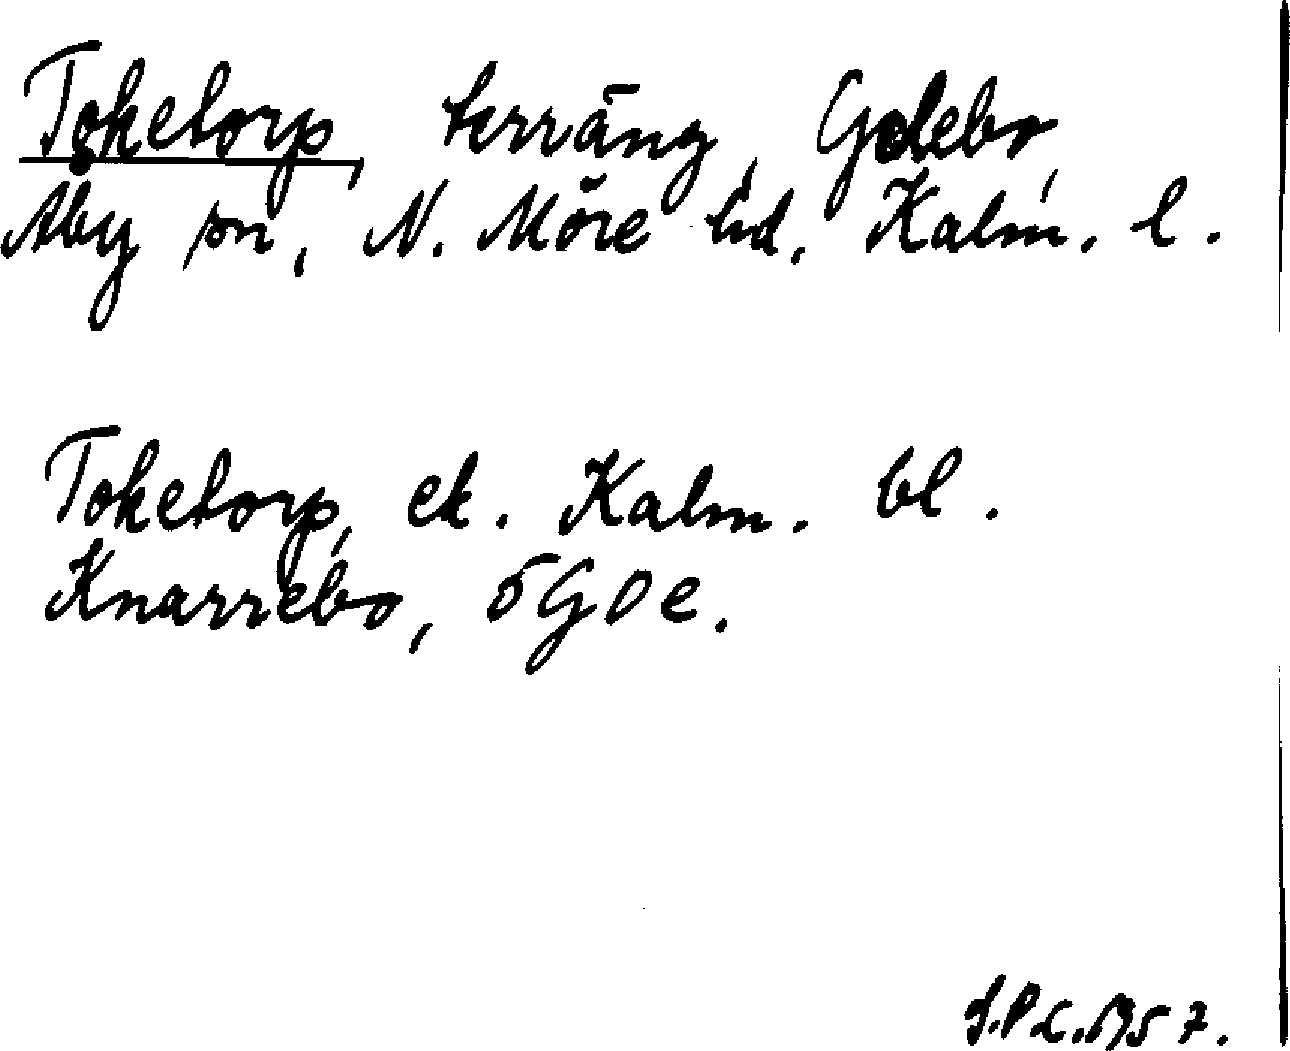 Toketorp, terräng, Gdebo,
Åby sn, N. Möre hd, Kalm. l.
Toketorp, ek. Kalm. bl.
Knarrebo, ÖGDe.
1957.